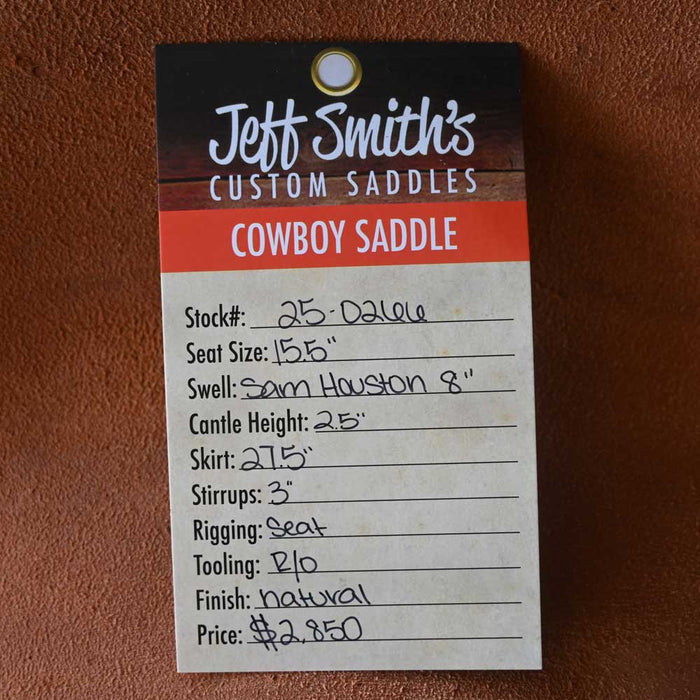 Jeff Smith's
CUSTOM SADDLES
COWBOY SADDLE
Stock#: 25-0266
Seat Size: 15.5"
Swell: Sam Houston 8"
Cantle Height: 2.5"
Skirt: 27.5"
Stirrups: 3"
Rigging: Seat
Tooling: R/O
Finish: natural
Price: $2,850